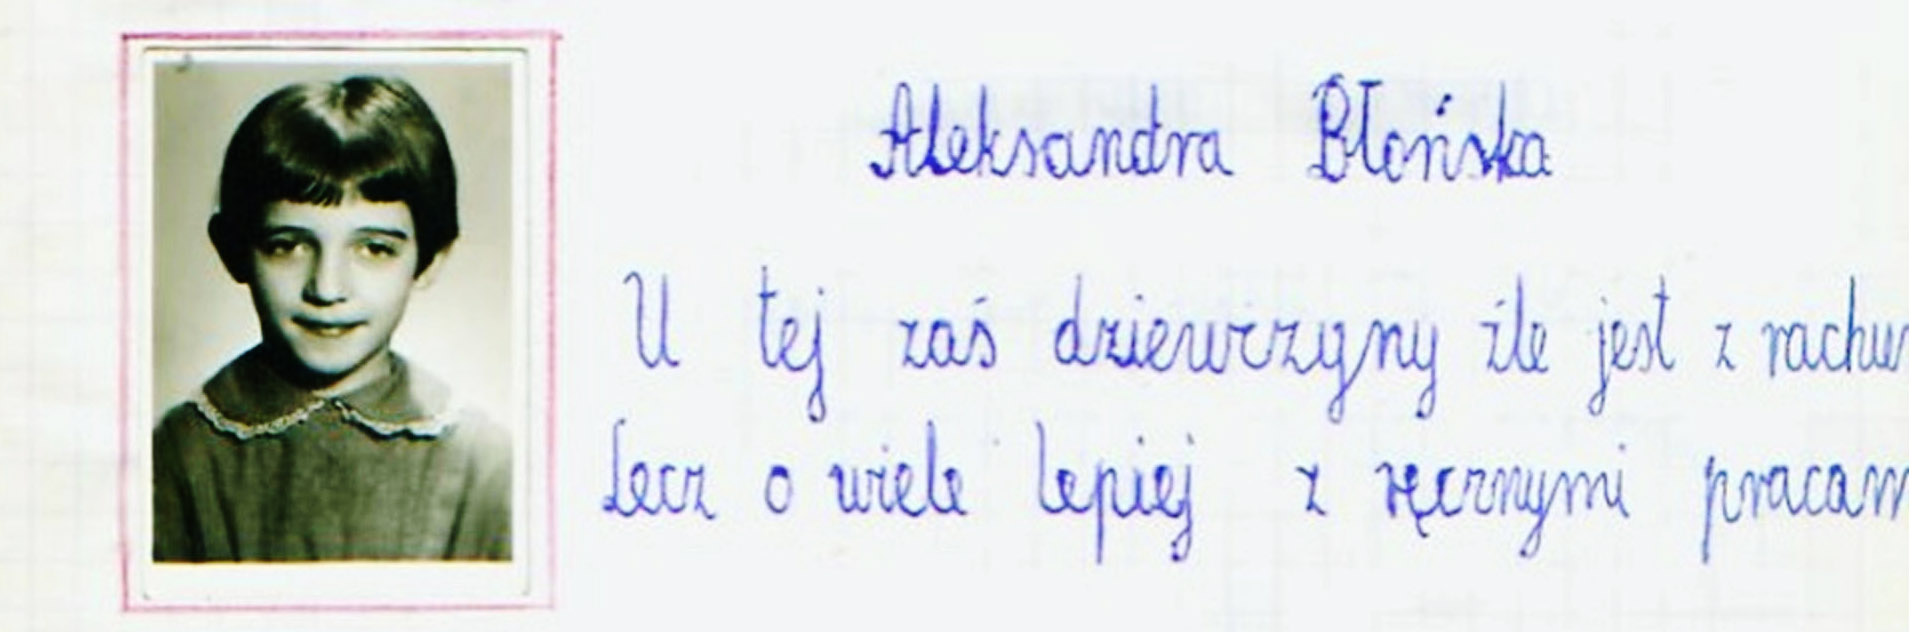 Aleksandra Błońska
U tej zaś dziewczyny źle jest z rachun
Lecz o wiele lepiej z ręcznymi pracam